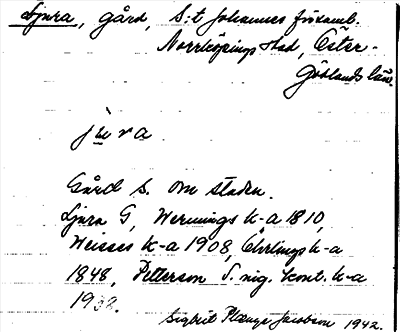 Ljura, gård, S:t Johannes församl.
Norrköpings stad, Öster-
götlands län.
jura
Gård S. om staden.
Ljura G, Wernings k-a 1810,
Weisses k-a 1908, Ehrlings k-a
1848, Petterson S. nig. kont. k-a
Sigbrit Plænge Jacobson 1942.